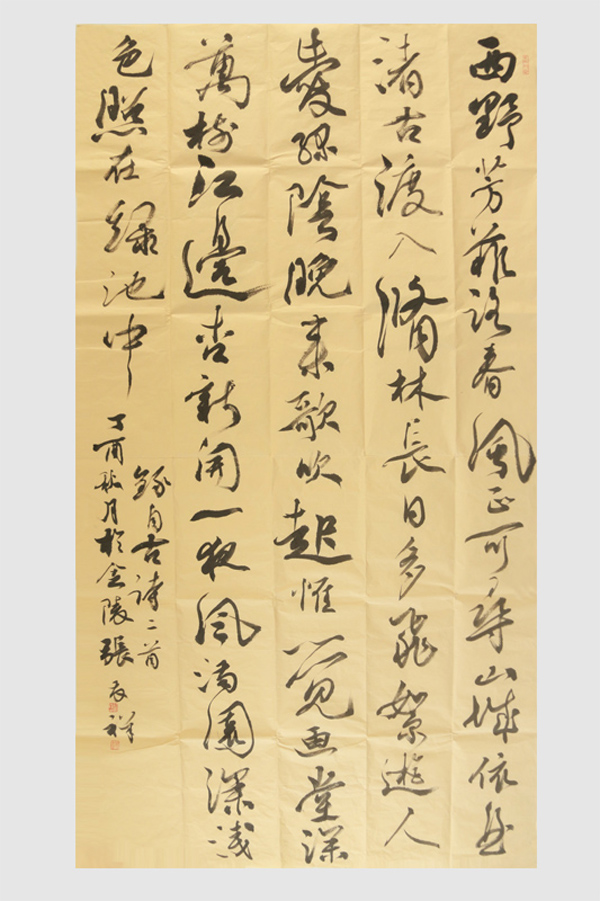 西野芳菲路春風正可尋山城依曲
渚古渡入脩林長日多飛絮遊人
愛綠陰晚來歌吹起惟覺画堂深
萬樹江邊杏新開一夜風滿園深淺
色照在綠池中
錄自古詩二首
丁酉秋月於金陵張友祥